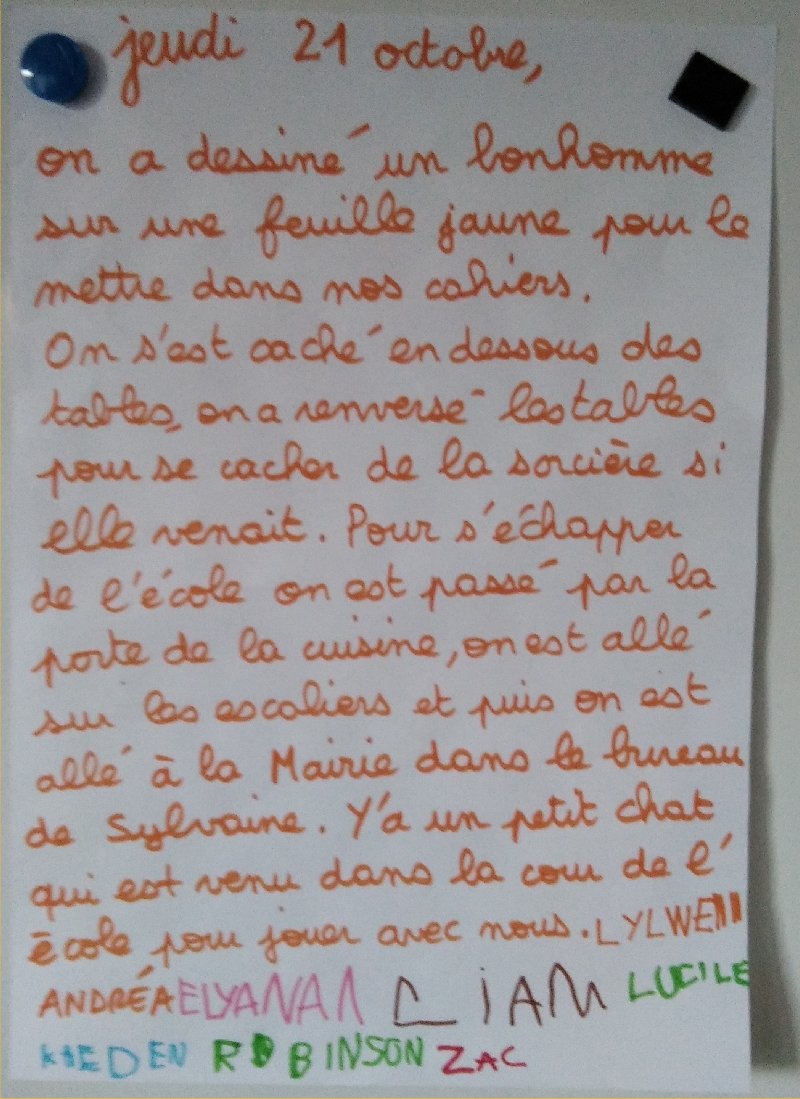 jeudi 21 octobre,
on a dessiné un bonhomme
sur une feuille jaune pour le
mettre dans nos cahiers.
On s'est caché en dessous des
tables, on a renversé les tables
pour se cacher de la sorcière si
elle venait. Pour s'échapper
de l'école on est passé par la
porte de la cuisine, on est allé
sur les escaliers et puis on est
allé à la Mairie dans le bureau
de Sylvaine. Y'a un petit chat
qui est venu dans la cour de l'
école pour jouer avec nous. LYLWENN
ANDRÉA ELYANAN LIAM LUCILE
KIEDEN ROBINSON ZAC